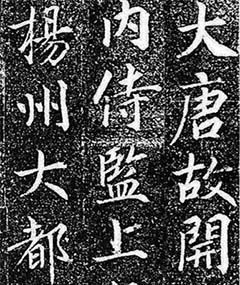 大唐故開
内侍監上
楊州大都